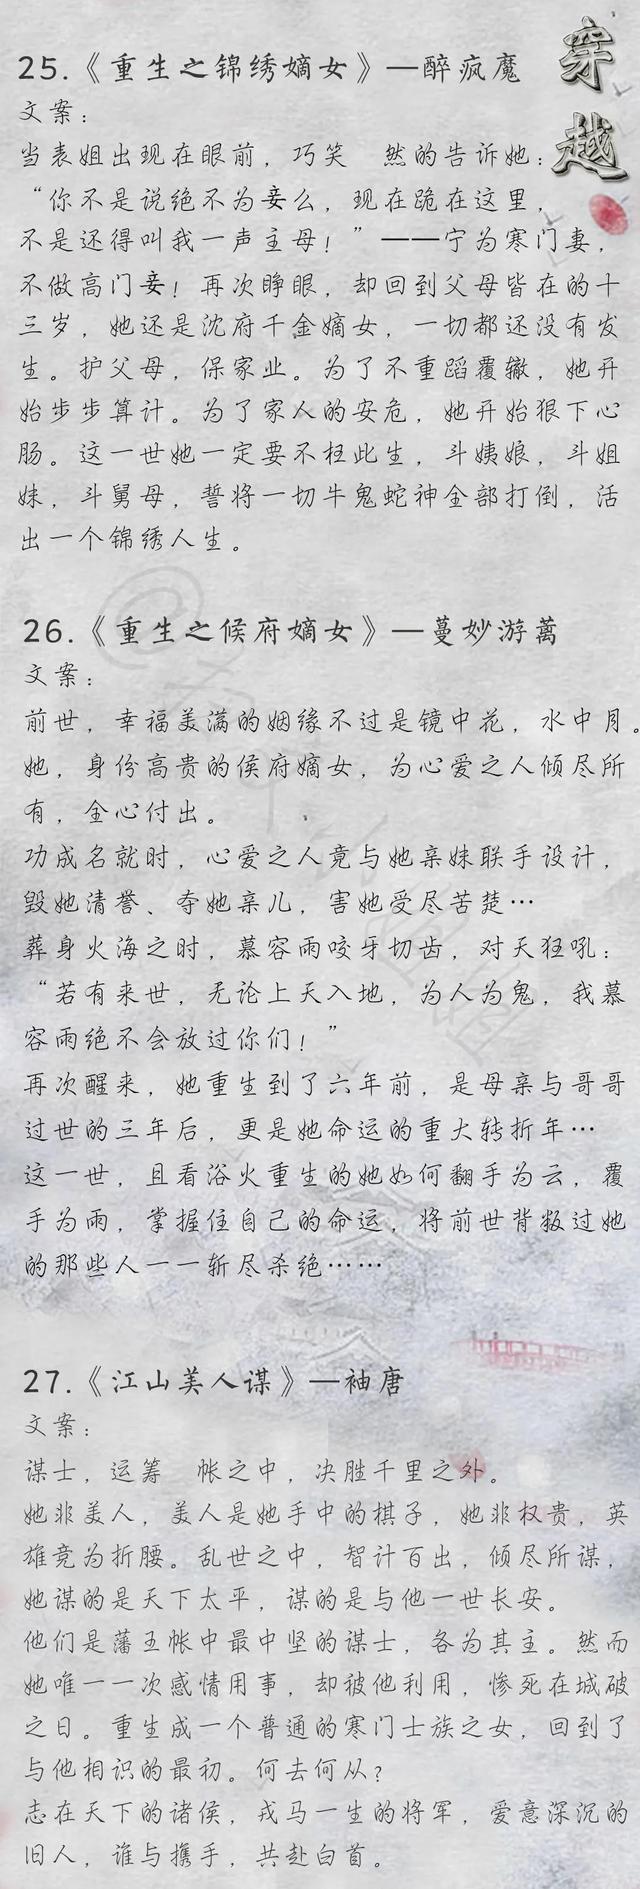 穿越
25.《重生之锦绣嫡女》—醉疯魔
文案：
当表姐出现在眼前，巧笑 然的告诉她：
“你不是说绝不为妾么，现在跪在这里，
不是还得叫我一声主母！”——宁为寒门妻，
不做高门妾！再次睁眼，却回到父母皆在的十
三岁，她还是沈府千金嫡女，一切都还没有发
生。护父母，保家业。为了不重蹈覆辙，她开
始步步算计。为了家人的安危，她开始狠下心
肠。这一世她一定要不枉此生，斗姨娘，斗姐
妹，斗舅母，誓将一切牛鬼蛇神全部打倒，活
出一个锦绣人生。
26.《重生之候府嫡女》—蔓妙游蓠
文案：
前世，幸福美满的姻缘不过是镜中花，水中月。
她，身份高贵的侯府嫡女，为心爱之人倾尽所
有，全心付出。
功成名就时，心爱之人竟与她亲妹联手设计，
毁她清誉、夺她亲儿，害她受尽苦楚…
葬身火海之时，慕容雨咬牙切齿，对天狂吼：
“若有来世，无论上天入地，为人为鬼，我慕
容雨绝不会放过你们！”
再次醒来，她重生到了六年前，是母亲与哥哥
过世的三年后，更是她命运的重大转折年…
这一世，且看浴火重生的她如何翻手为云，覆
手为雨，掌握住自己的命运，将前世背叛过她
的那些人一一斩尽杀绝……
27.《江山美人谋》—袖唐
文案：
谋士，运筹 帐之中，决胜千里之外。
她非美人，美人是她手中的棋子，她非权贵，英
雄竞为折腰。乱世之中，智计百出，倾尽所谋，
她谋的是天下太平，谋的是与他一世长安。
他们是藩王帐中最中坚的谋士，各为其主。然而
她唯一一次感情用事，却被他利用，惨死在城破
之日。重生成一个普通的寒门士族之女，回到了
与他相识的最初。何去何从？
志在天下的诸侯，戎马一生的将军，爱意深沉的
旧人，谁与携手，共赴白首。